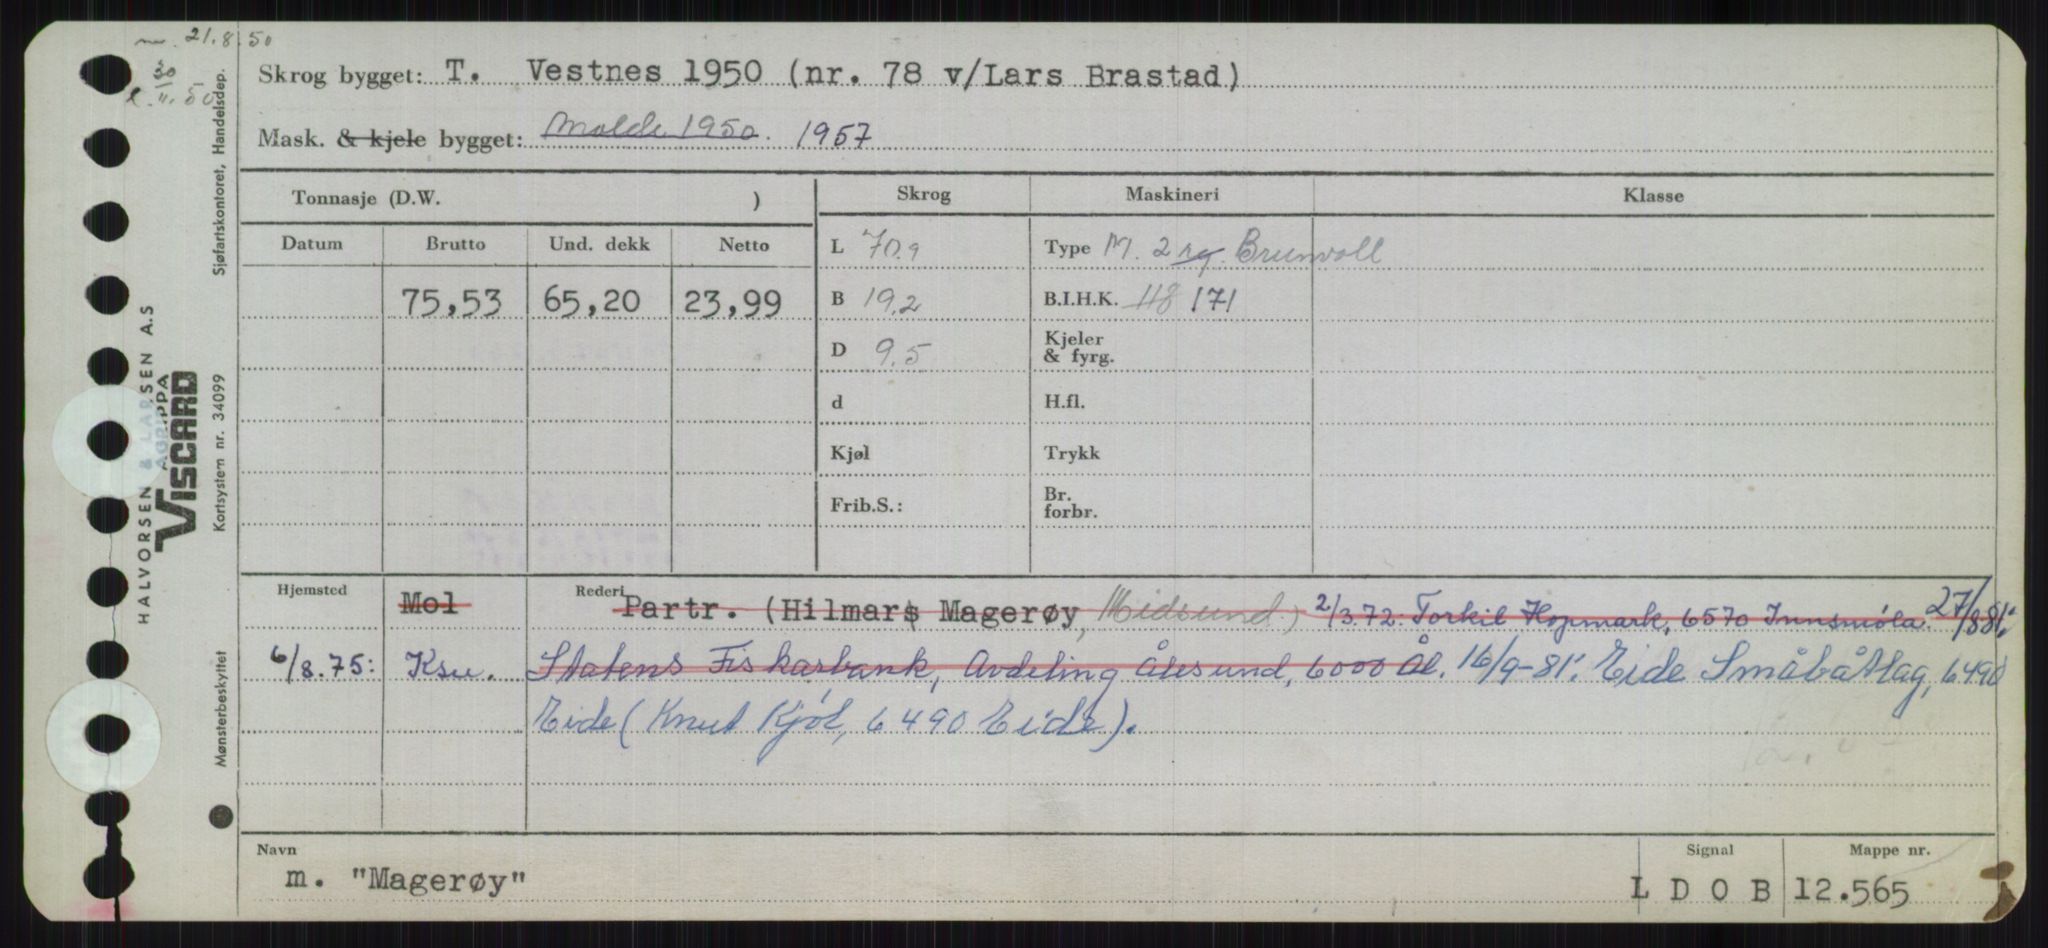 21.8.50
30
11.50
Skrog bygget: T. Vestnes 1950 (nr. 78 v/Lars Brastad)
Mask. & kjele bygget: Molde 1950. 1957
Tonnasje (D.W. )
Skrog
Maskineri
Klasse
Datum
Brutto
Und. dekk
Netto
L 70.9
Type M. 2 sy. Brunvoll
75,53
65,20
23,99
B 19,2
B.I.H.K. 118 171
D 9.5
Kjeler
& fyrg.
d
H.fl.
Kjøl
Trykk
Frib.S.:
Br.
forbr.
Hjemsted
Mol
Rederi
Partr. (Hilmars Magerøy, Midsund.) 2/3.72: Torkil Hopmark, 6570 Innsmøla. 27/8 81:
6/8.75: Ksu. Statens Fiskarbank, Avdeling Ålesund, 6000 Ål. 16/9-81: Eide Småbåtlag, 6490
Eide (Knut Kjøl, 6490 Eide).
Navn
m. "Magerøy"
Signal
L D O B
Mappe nr.
12.565
Sjøfartskontoret, Handelsdep.
HALVORSEN & LARSEN A.S
AGRIPPA
VISCARD
Kortsystem nr. 34099
Mønsterbeskyttet